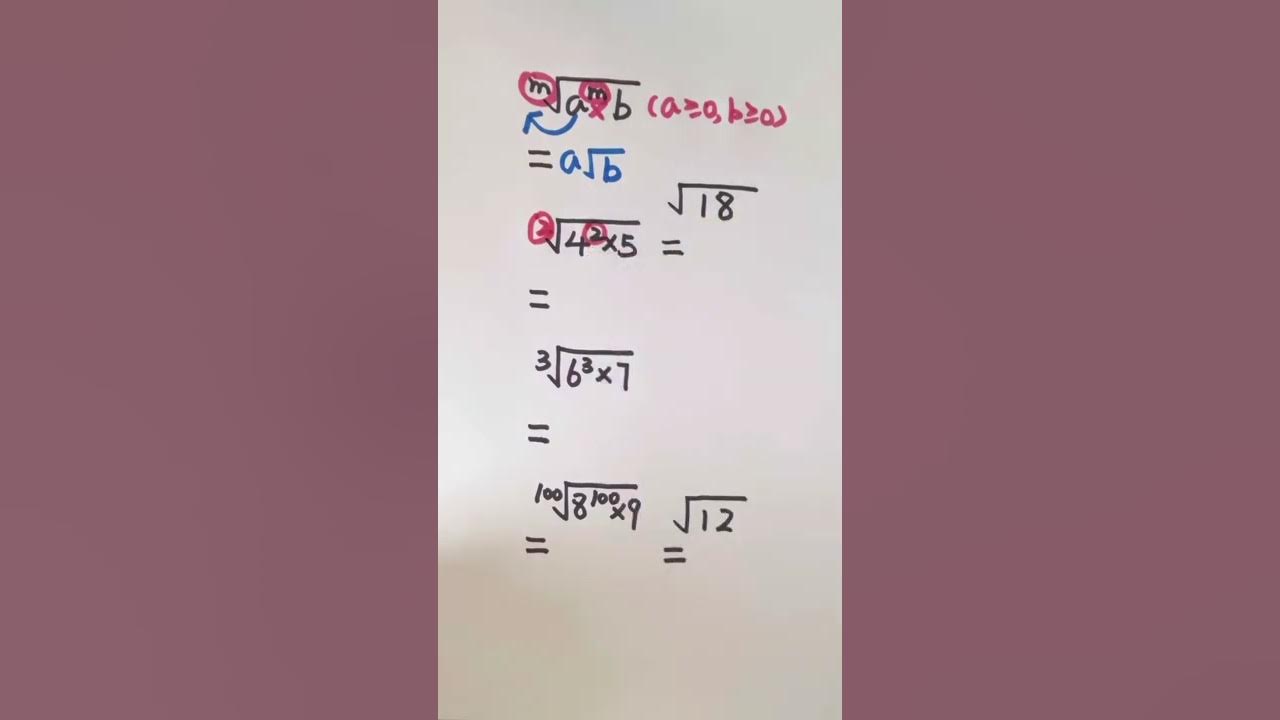 ᵐ√(aᵐ×b) (a≥0, b≥0)
= a√b
√18
²√(4²×5) =
=
³√(6³×7)
=
¹⁰⁰√(8¹⁰⁰×9) √12
= =